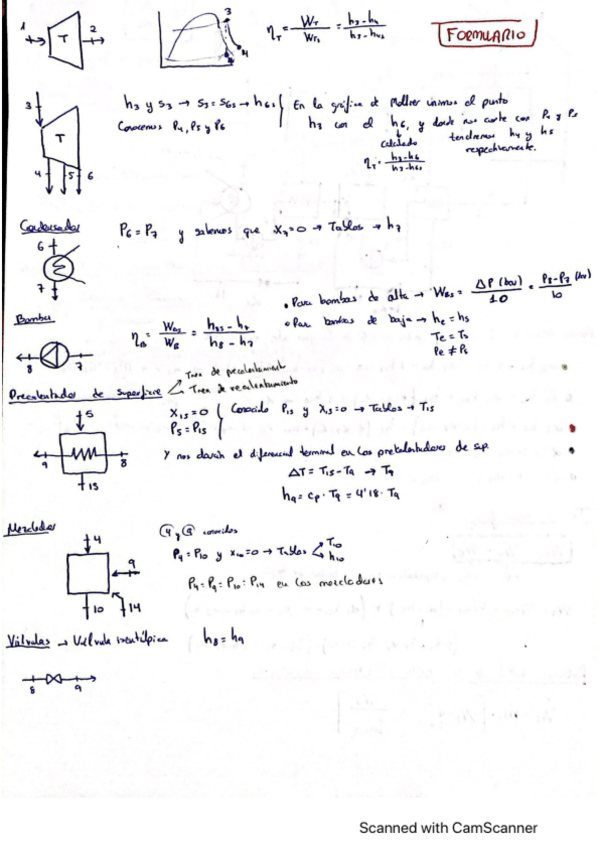 FORMULARIO
1 T 2
3
4
η_T = W_T / W_Ts = h3 - h4 / h3 - h4s
3 T 4 5 6
h3 y s3 → s3 = s6s → h6s
Conocemos P4, P5 y P6
En la gráfica de Mollier unimos el punto
h3 con el h6, y donde nos corte con P4 y P5
calculado
tendremos h4 y h5
respectivamente.
η_T = h3 - h6 / h3 - h6s
Condensador
6
7
P6 = P7 y sabemos que X7 = 0 → Tablas → h7
Bomba
8 7
η_B = W_Bs / W_B = h8s - h7 / h8 - h7
• Para bombas de alta → W_Bs = ΔP (bar) / 10 = P8 - P7 (bar) / 10
• Para bombas de baja → he = hs
Te = Ts
Pe ≠ Ps
Precalentador de superficie
Tren de precalentamient
Tren de recalentamiento
5
9 8
15
X15 = 0
P5 = P15
Conocido P15 y X15 = 0 → Tablas → T15
Y nos darán el diferencial terminal en los precalentadores de sup
ΔT = T15 - T9 → T9
h9 = cp · T9 = 4'18 · T9
Mezclador
4
9
10 14
④ y ⑨ conocidos
P9 = P10 y X10 = 0 → Tablas
T10
h10
P4 = P9 = P10 = P14 en los mezcladores
Válvulas → Válvula isentálpica h8 = h9
8 9
Scanned with CamScanner